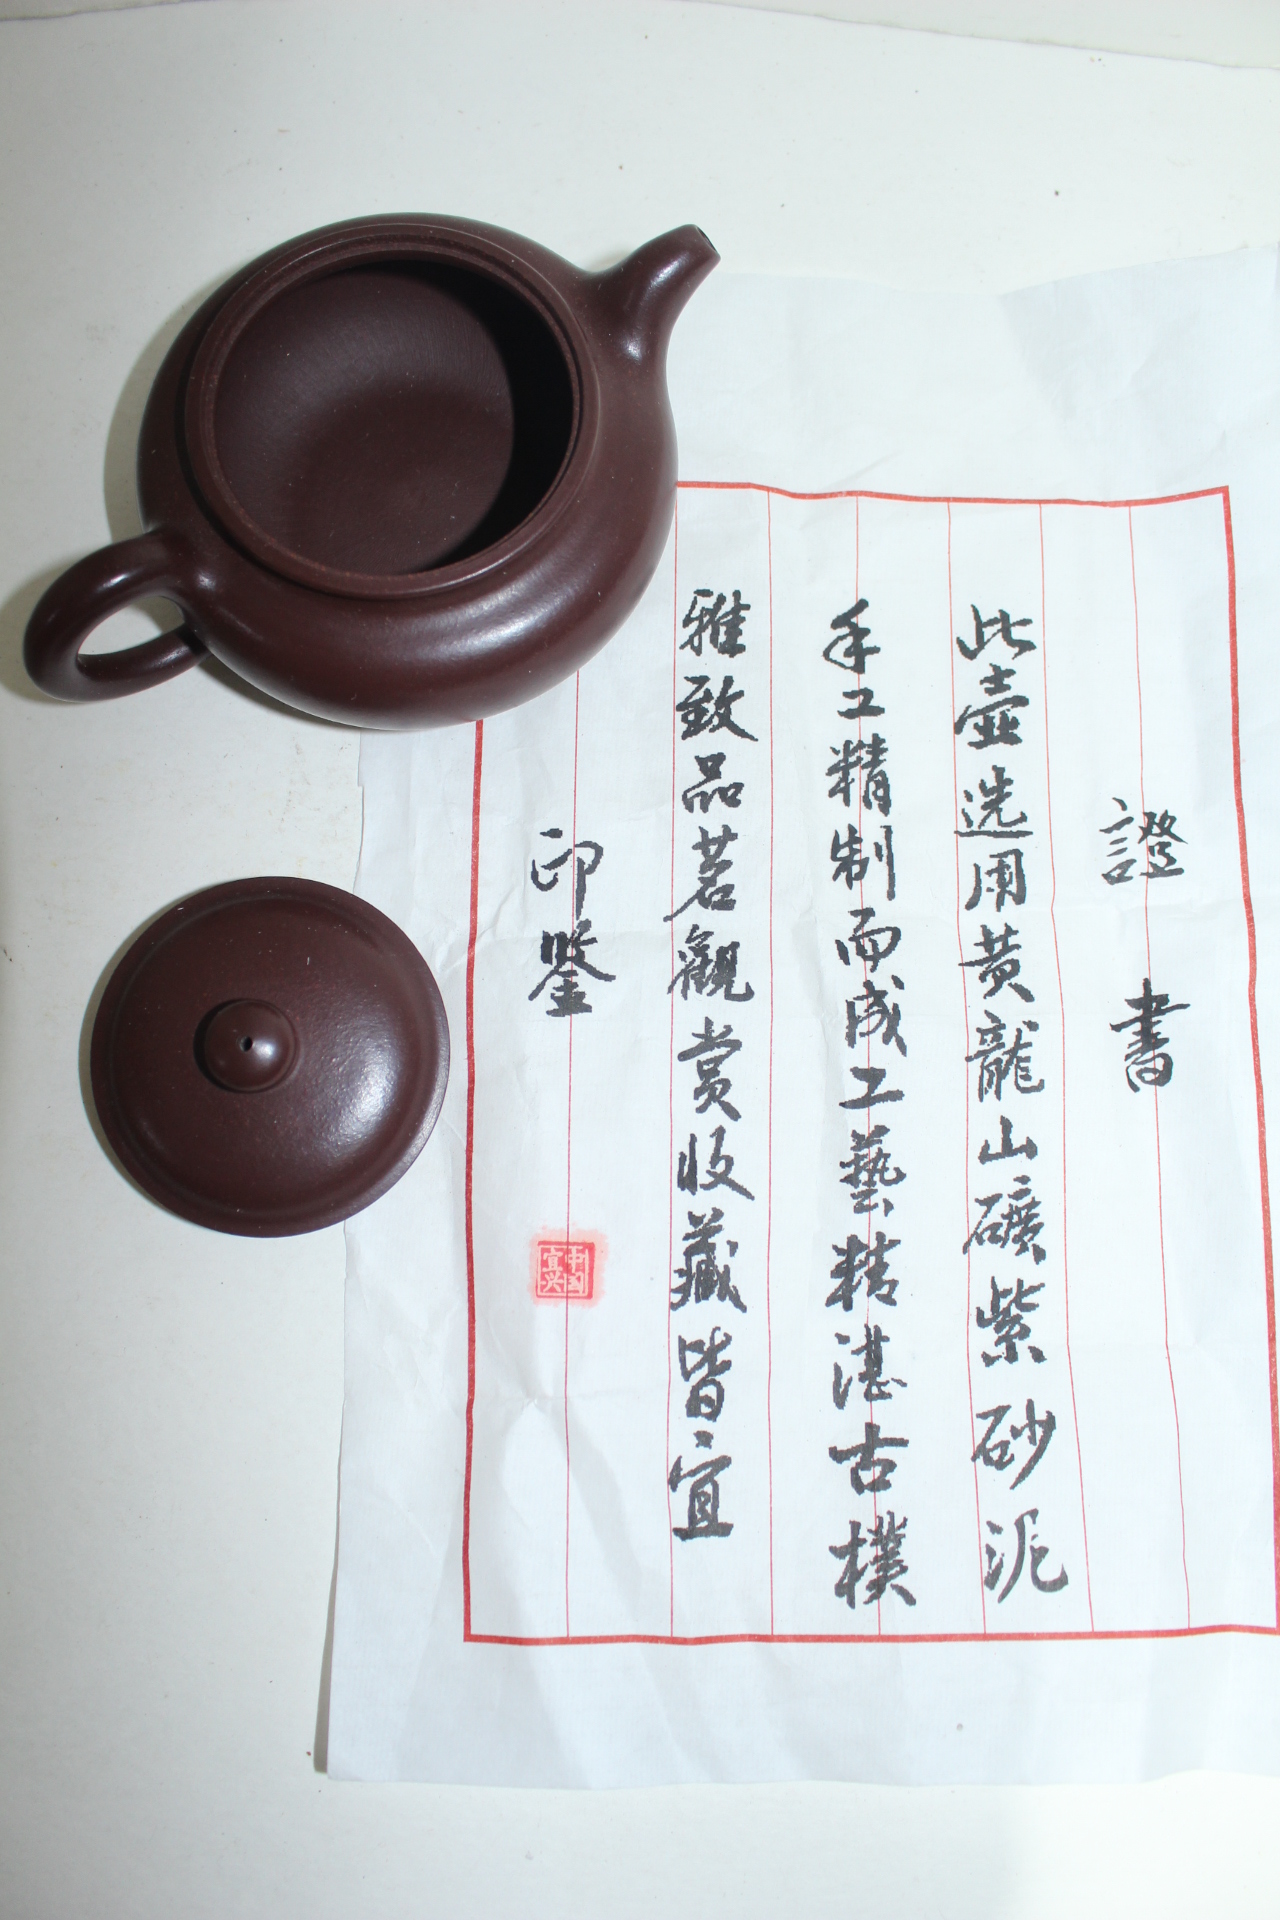 證書
此壺选用黄龍山礦紫砂泥
手工精制而成工藝精湛古樸
雅致品茗觀赏收藏皆宜
印鋻
中国宜兴